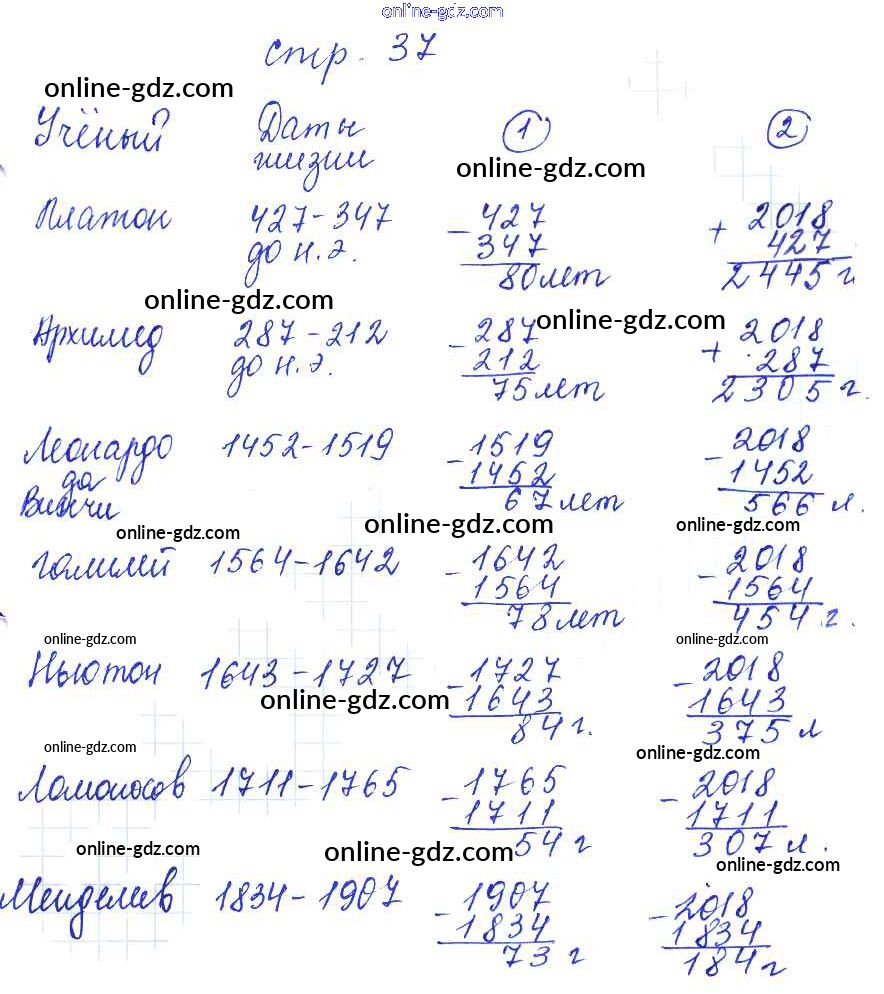 online-gdz.com
стр. 37
online-gdz.com
Учёный Даты жизни 1 2
online-gdz.com
Платон 427-347 до н.э. - 427 + 2018
347 427
80 лет 2445 г.
online-gdz.com
online-gdz.com
Архимед 287-212 до н.э. - 287 + 2018
212 287
75 лет 2305 г.
Леонардо да Винчи 1452-1519 - 1519 - 2018
1452 1452
67 лет 566 л.
online-gdz.com online-gdz.com online-gdz.com
Галилей 1564-1642 - 1642 - 2018
1564 1564
78 лет 454 г.
online-gdz.com online-gdz.com
Ньютон 1643-1727 - 1727 - 2018
online-gdz.com 1643 1643
84 г. 375 л
online-gdz.com online-gdz.com
Ломоносов 1711-1765 - 1765 - 2018
1711 1711
54 г 307 л.
online-gdz.com online-gdz.com online-gdz.com
Менделев 1834-1907 - 1907 - 2018
1834 1834
73 г 184 г